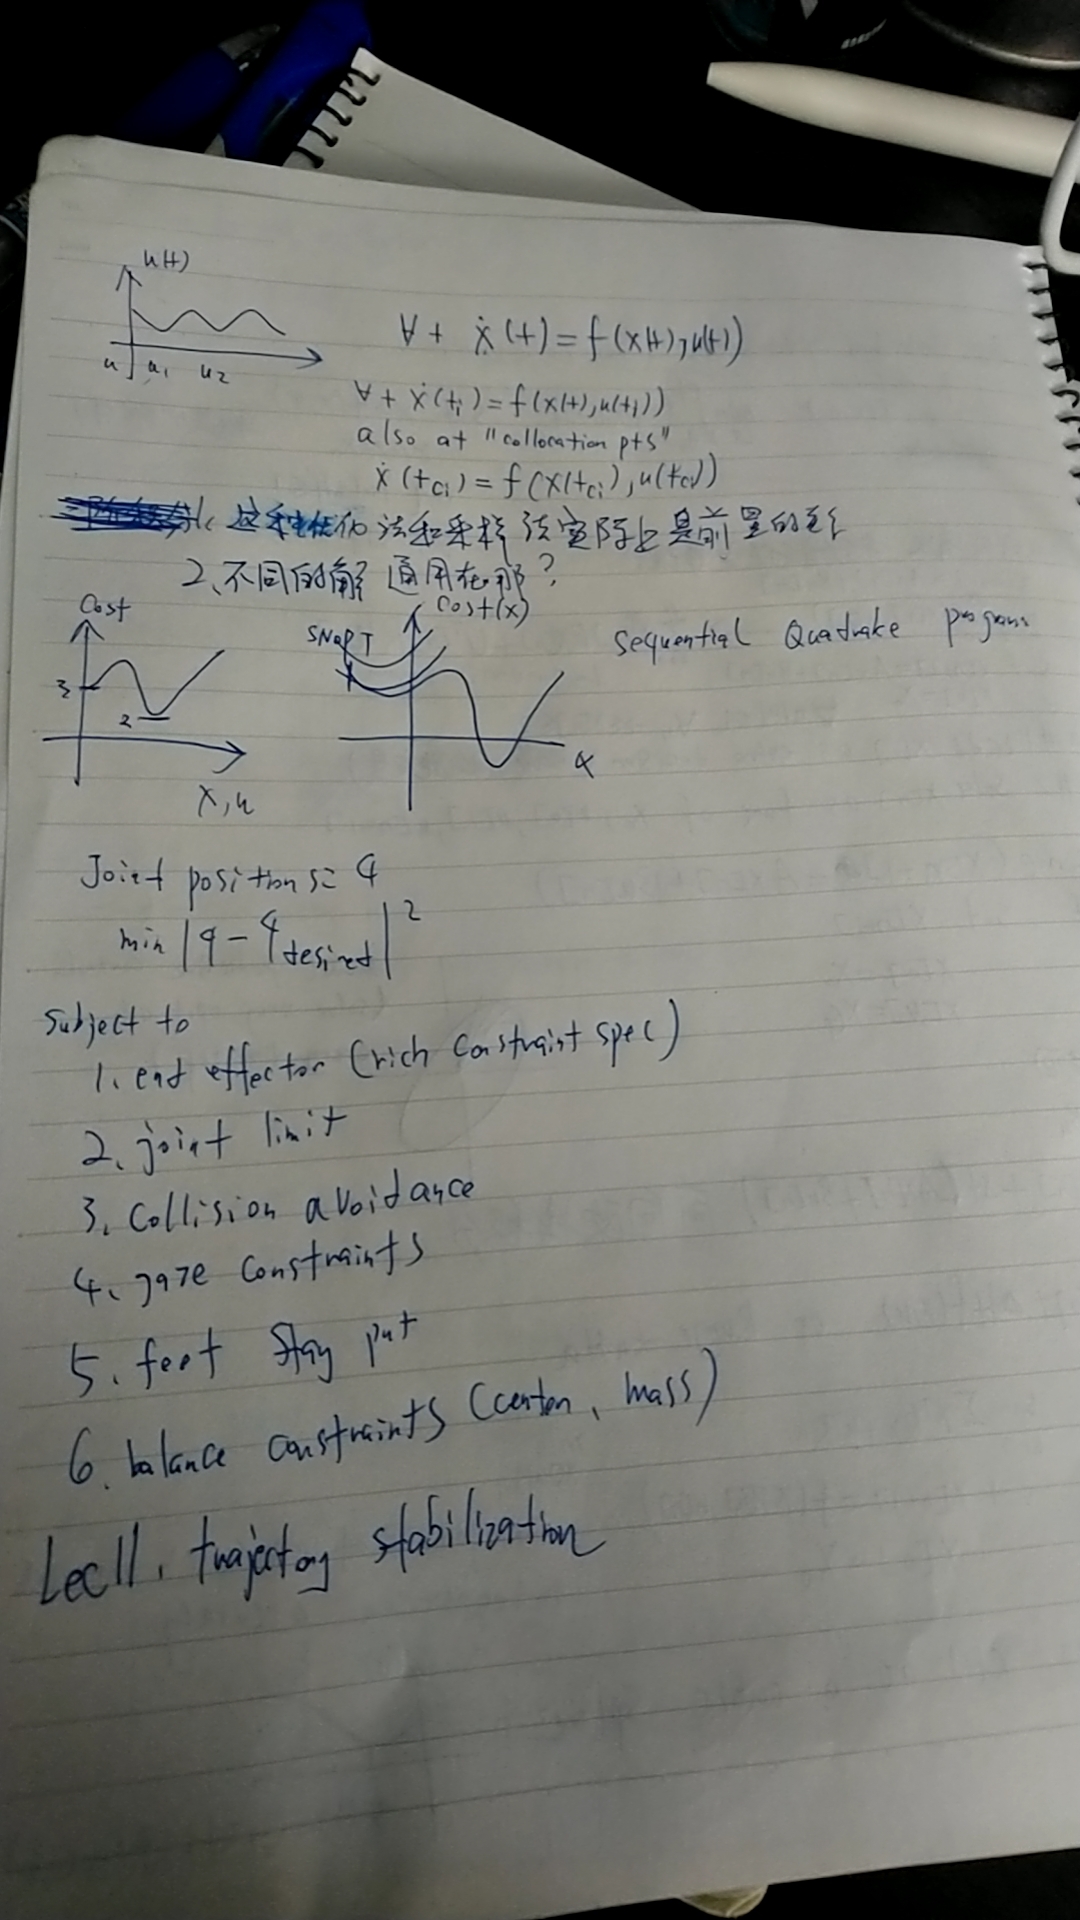 u(t)
u u1 u2
∀ t ẋ(t) = f(x(t), u(t))
∀ t ẋ(ti) = f(x(t), u(ti))
also at "collocation pts"
ẋ(tci) = f(x(tci), u(tci))
1. 这种优化法和采样法实际上是前置的
2、不同的解通用在那?
Cost
3
2
x, u
SNOPT
Cost(x)
α
Sequential Quadrake program
Joint positions = q
min |q - q desired|²
Subject to
1. end effector (rich constraint spec)
2. joint limit
3. Collision avoidance
4. gaze constraints
5. feet stay put
6. balance constraints (center, mass)
Lec11. trajectory stabilization